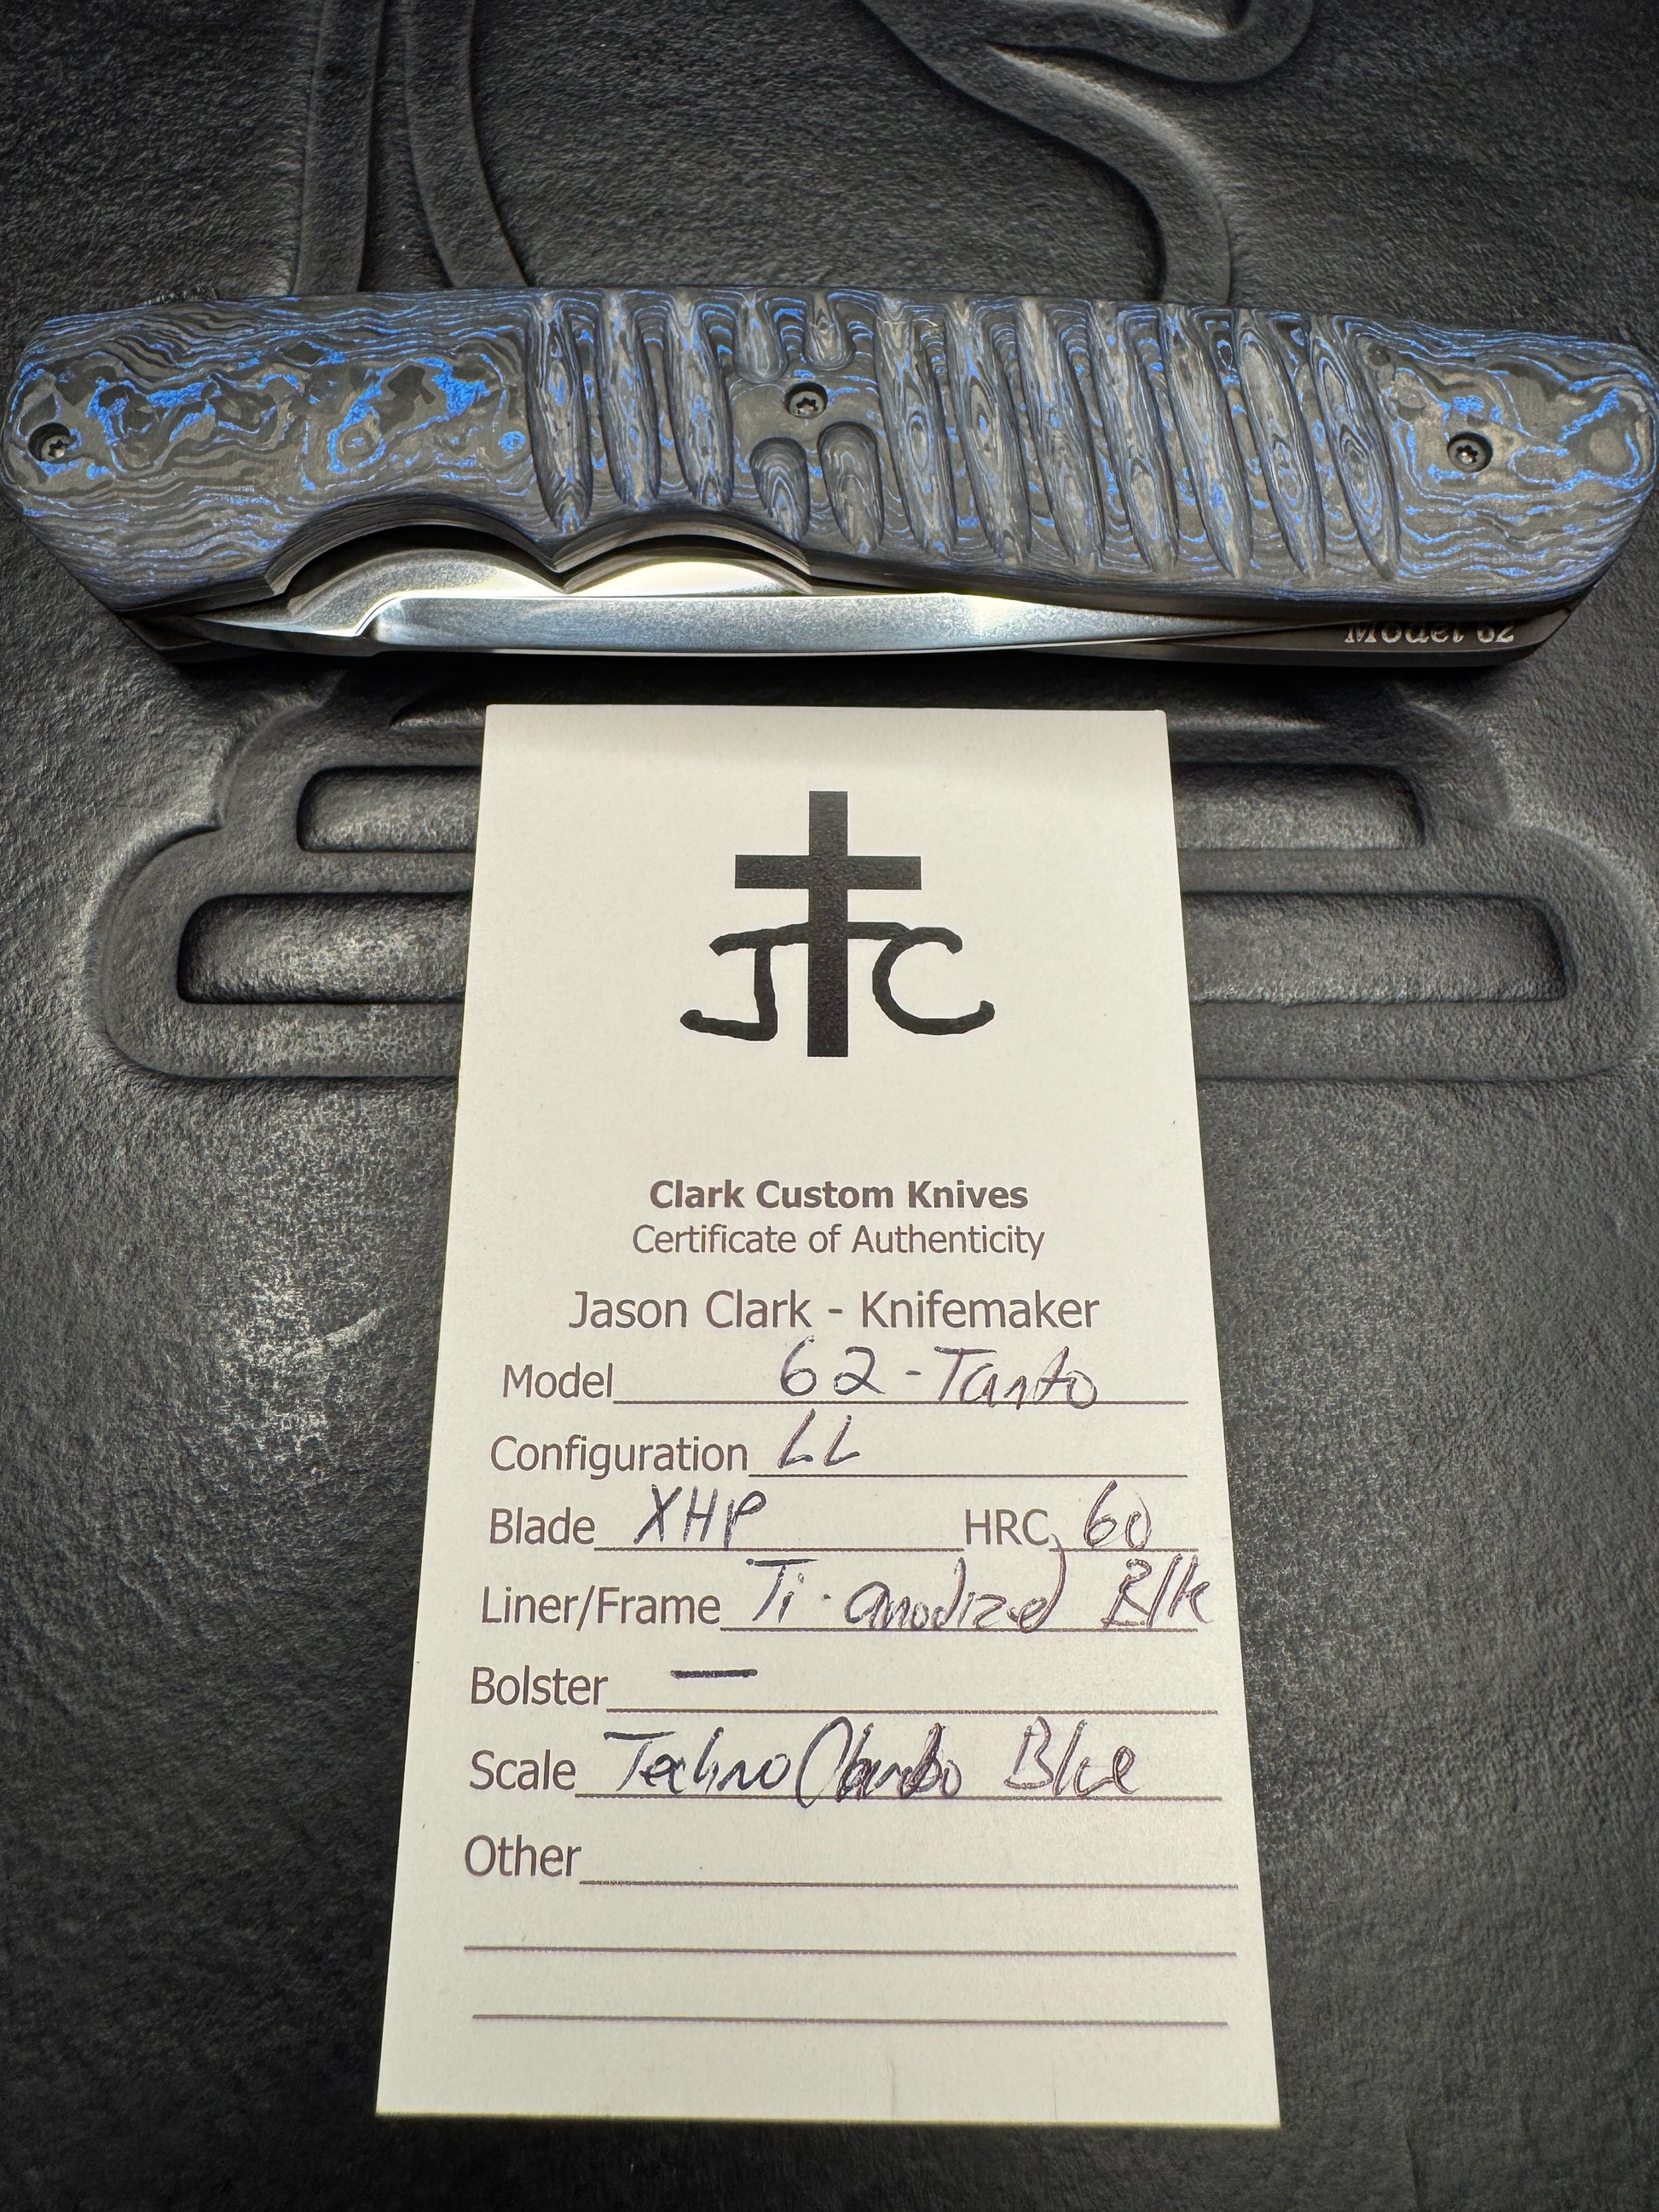 Model 62
JC
Clark Custom Knives
Certificate of Authenticity
Jason Clark - Knifemaker
Model 62-Tanto
Configuration LL
Blade XHP HRC 60
Liner/Frame Ti - anodized Blk
Bolster —
Scale Techno Carbo Blue
Other